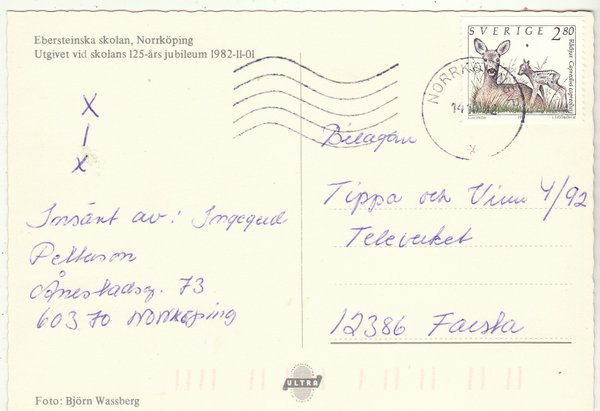 Ebersteinska skolan, Norrköping
Utgivet vid skolans 125-års jubileum 1982-11-01
X
1
X
Insänt av: Ingegerd
Pettersson
73
603 70 Norrköping
Foto: Björn Wassberg
ULTRA
SVERIGE 2.80
Rådjur Capreolus capreolus
NORRKÖ
Bilagan
Tippa och Vinn 4/92
Televerket
12386 Farsta